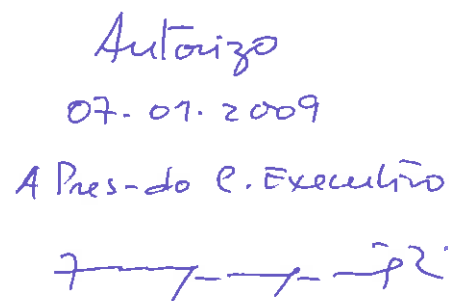 Autorizo
07-01-2009
A Pres-do C. Executivo